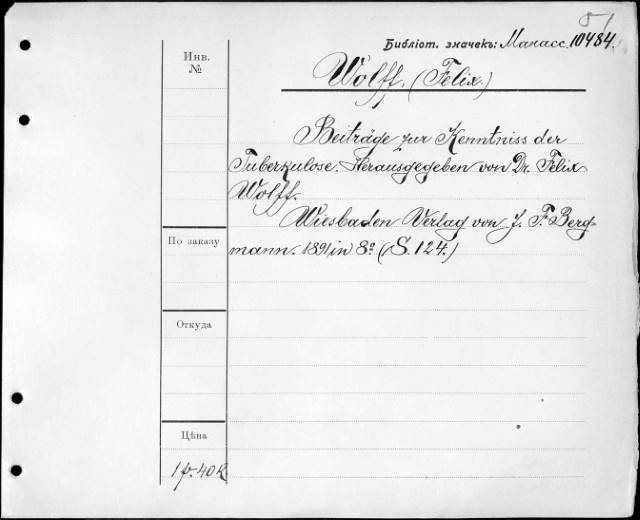 51
Библіот. значекъ: Манасс. 10484.
Инв.
№
Wolff. (Felix.)
Beiträge zur Kenntniss der
Tuberkulose. Herausgegeben von Dr. Felix
Wolff.
Wiesbaden Verlag von J. F. Berg-
mann. 1891, in 8º (S. 124.)
По заказу
Откуда
Цѣна
1 р. 40 к.